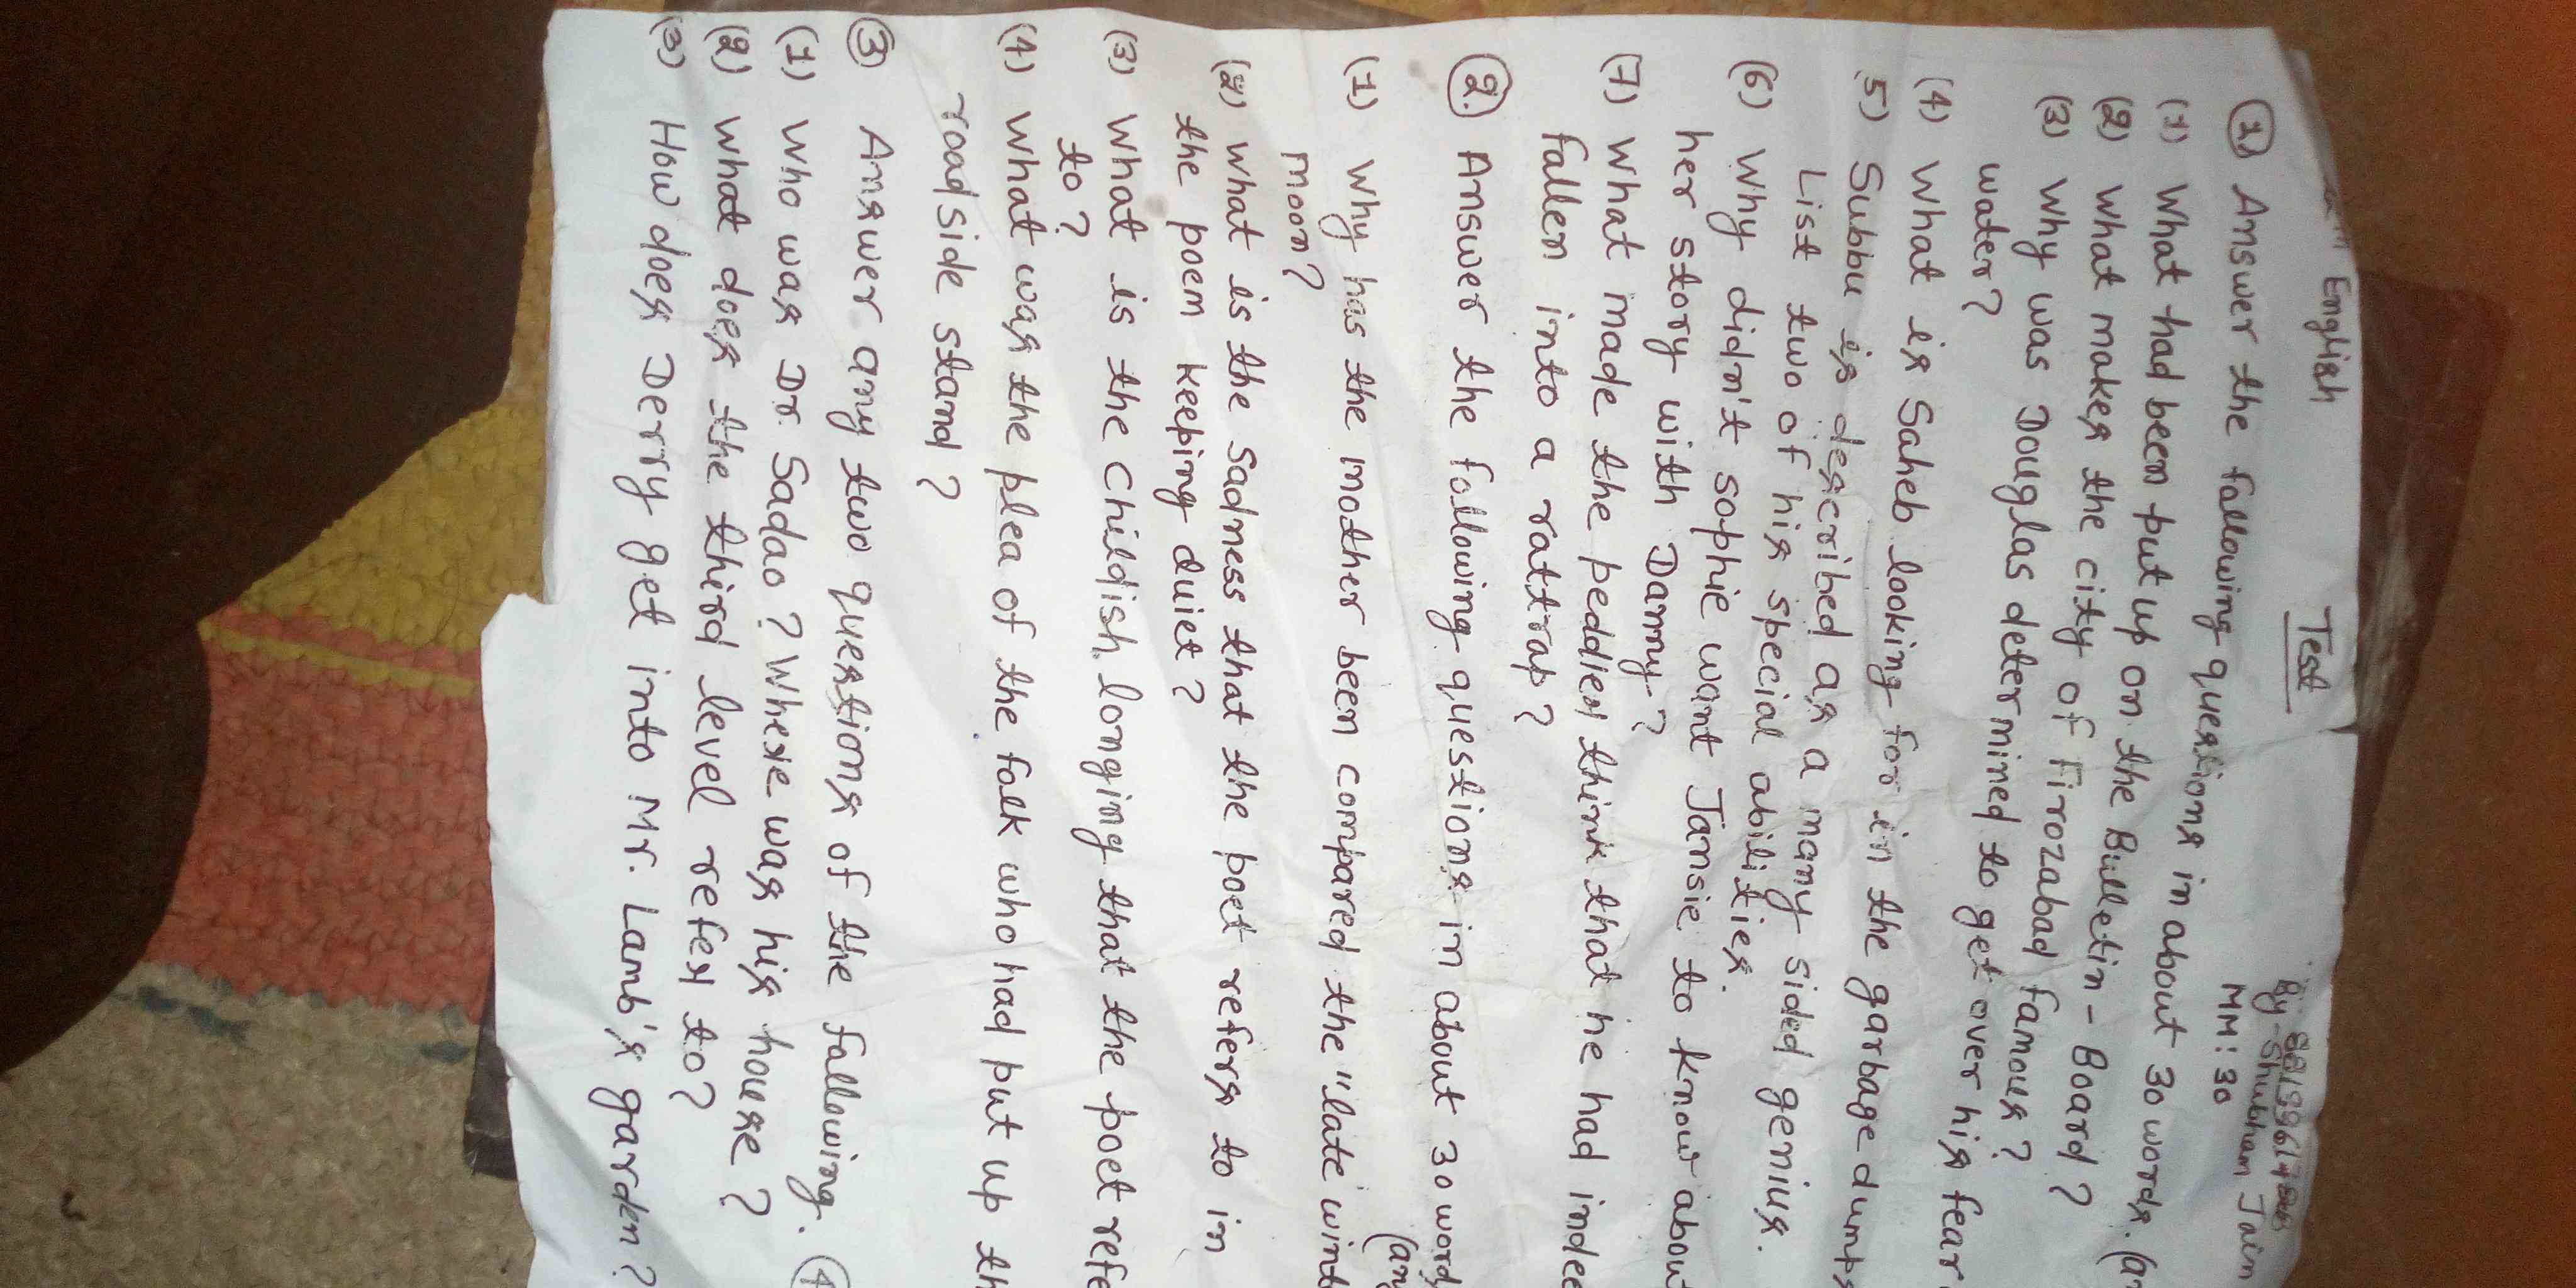 English
Test
By-Shubham Jain
MM:30
(1) Answer the following questions in about 30 words.
(1) What had been put up on the Bulletin-Board?
(2) What makes the city of Firozabad famous?
(3) Why was Douglas determined to get over his fear
water?
(4) What is Saheb looking for in the garbage dumps
5) Subbu is described as a many sided genius.
List two of his special abilities.
(6) Why didn't sophie want Jansie to know about
her story with Danny?
(7) What made the peddler think that he had indee
fallen into a rattrap?
(2.) Answer the following questions in about 30 word
(1) Why has the mother been compared the "late wint
moon?
(2) What is the sadness that the poet refers to in
the poem keeping quiet?
(3) What is the childish longing that the poet refe
to?
(4) What was the plea of the folk who had put up th
roadside stand?
(3) Answer any two questions of the following. (4
(1) Who was Dr. Sadao? Where was his house?
(2) What does the third level refer to?
(3) How does Derry get into Mr. Lamb's garden?